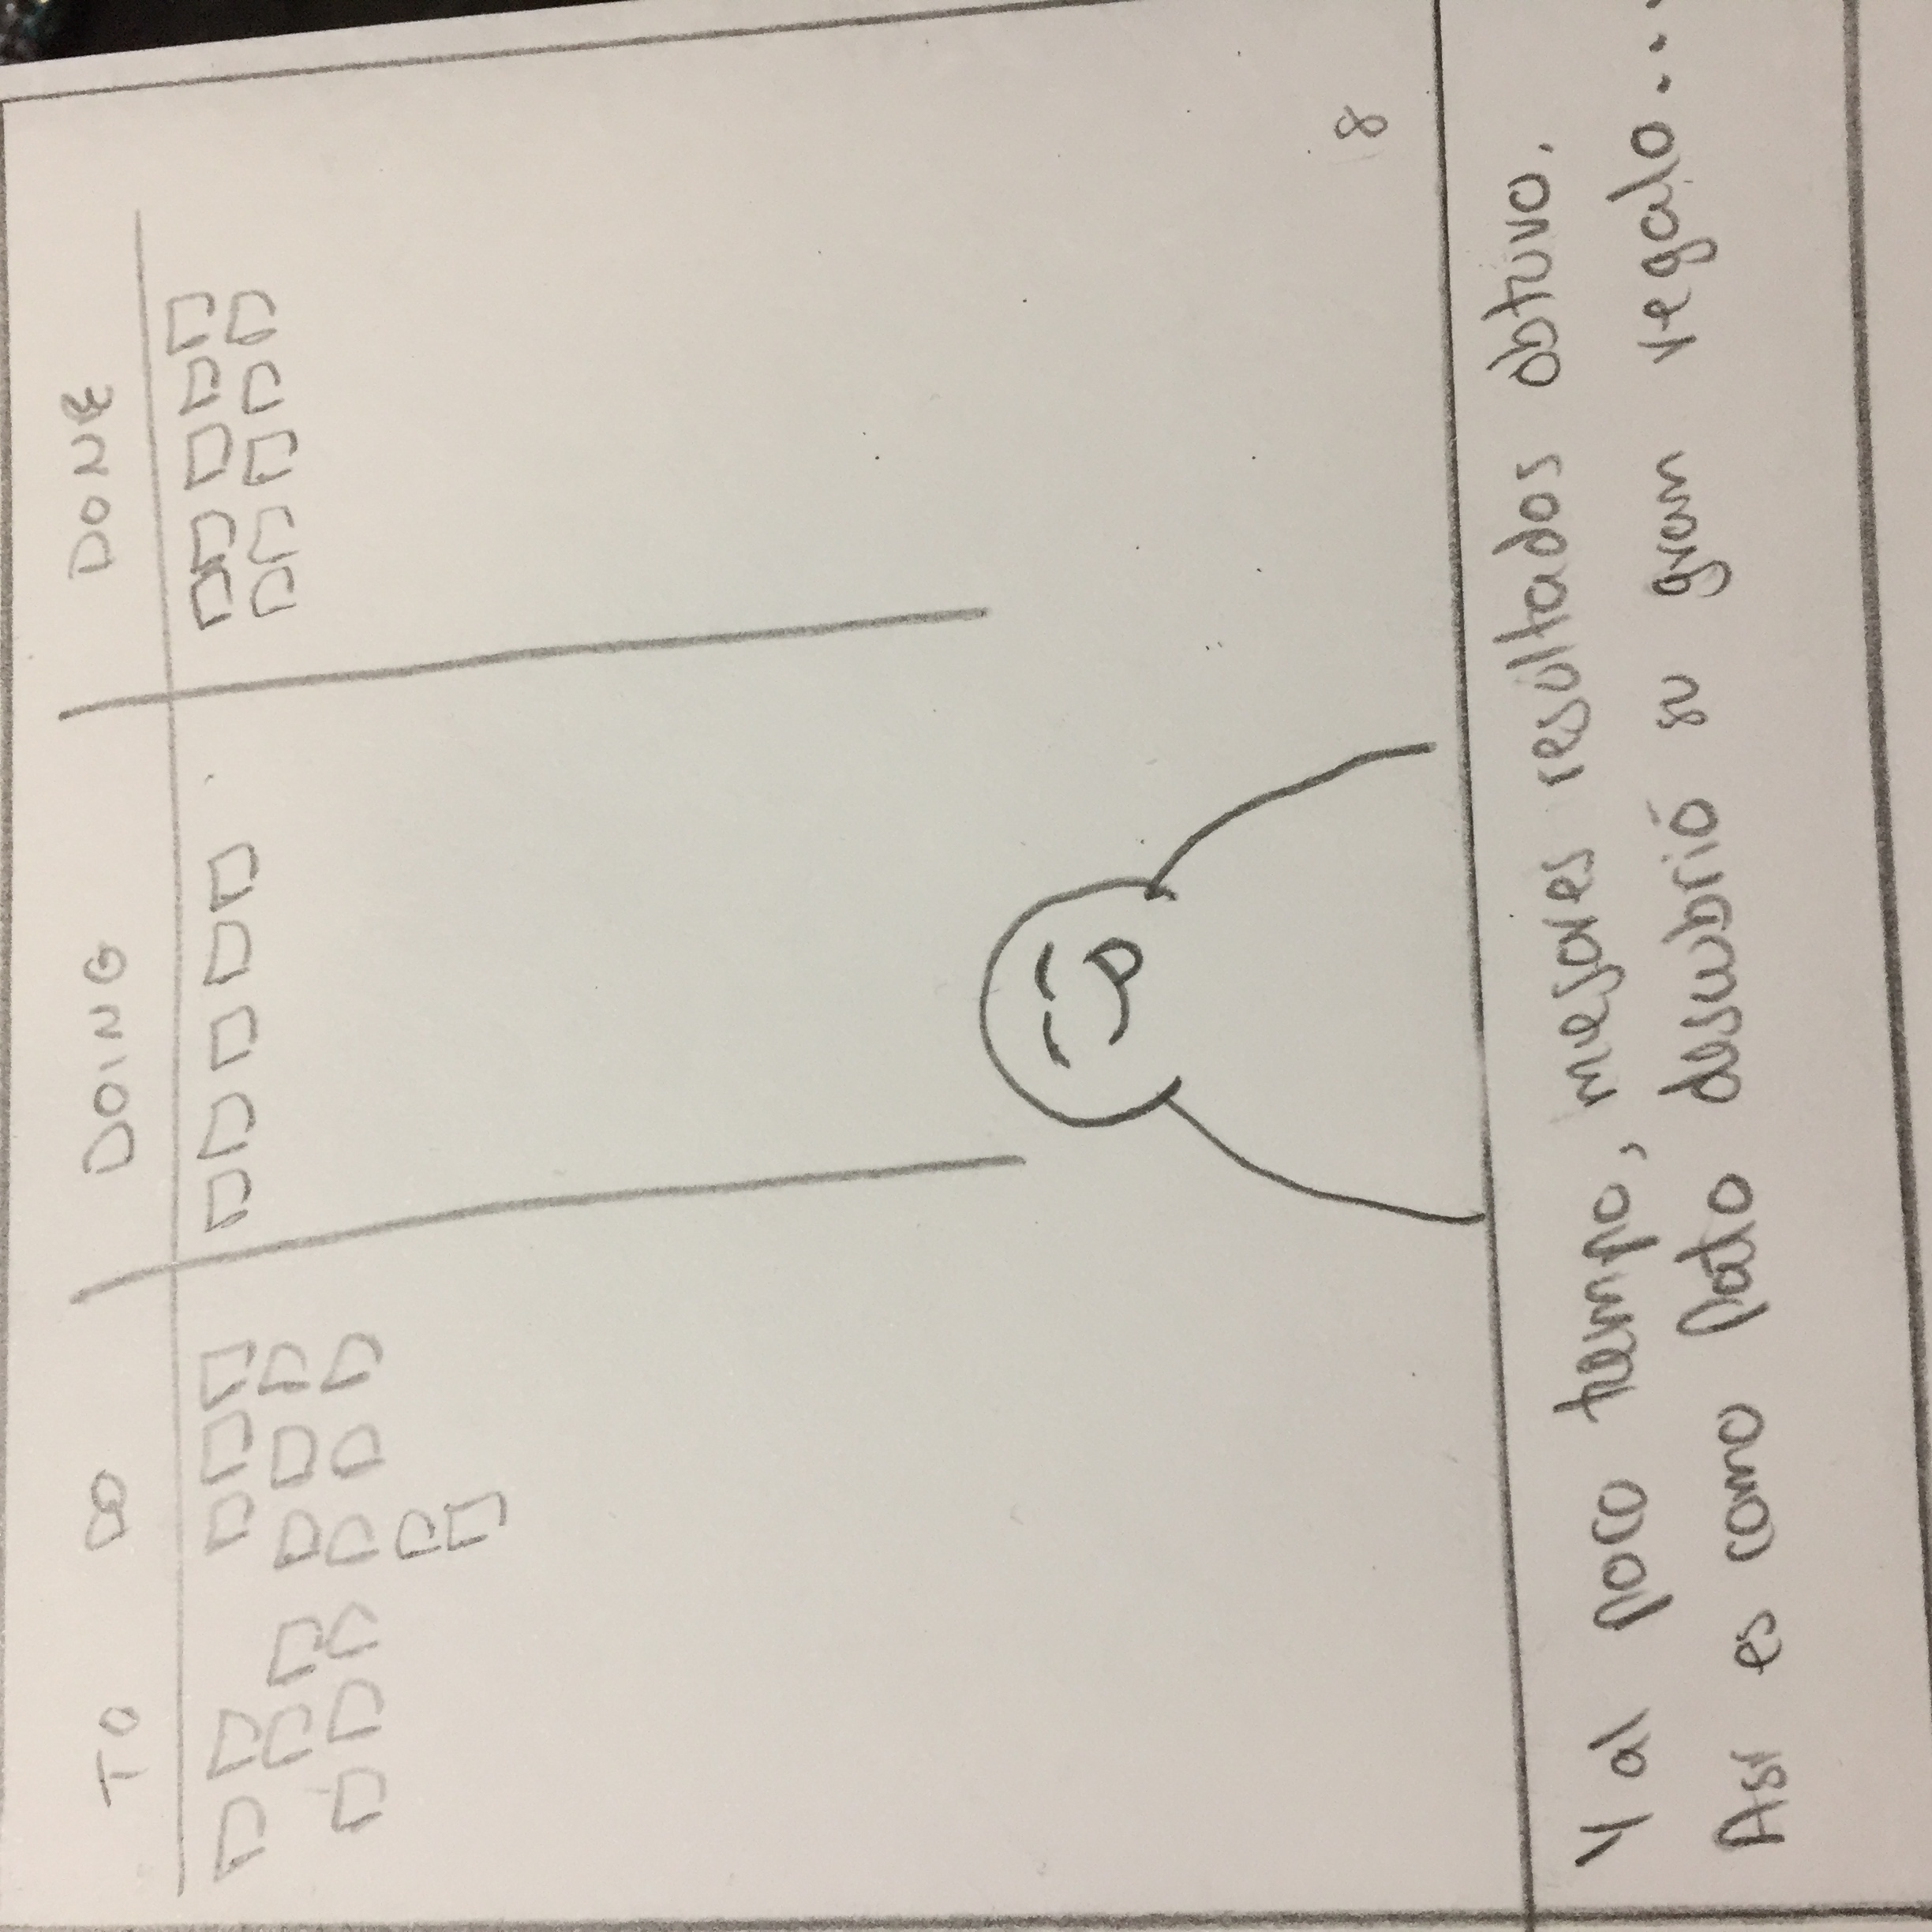 TO DO DOING DONE
8
Y al poco tiempo, mejores resultados obtuvo.
Así es como Pato descubrió su gran regalo...